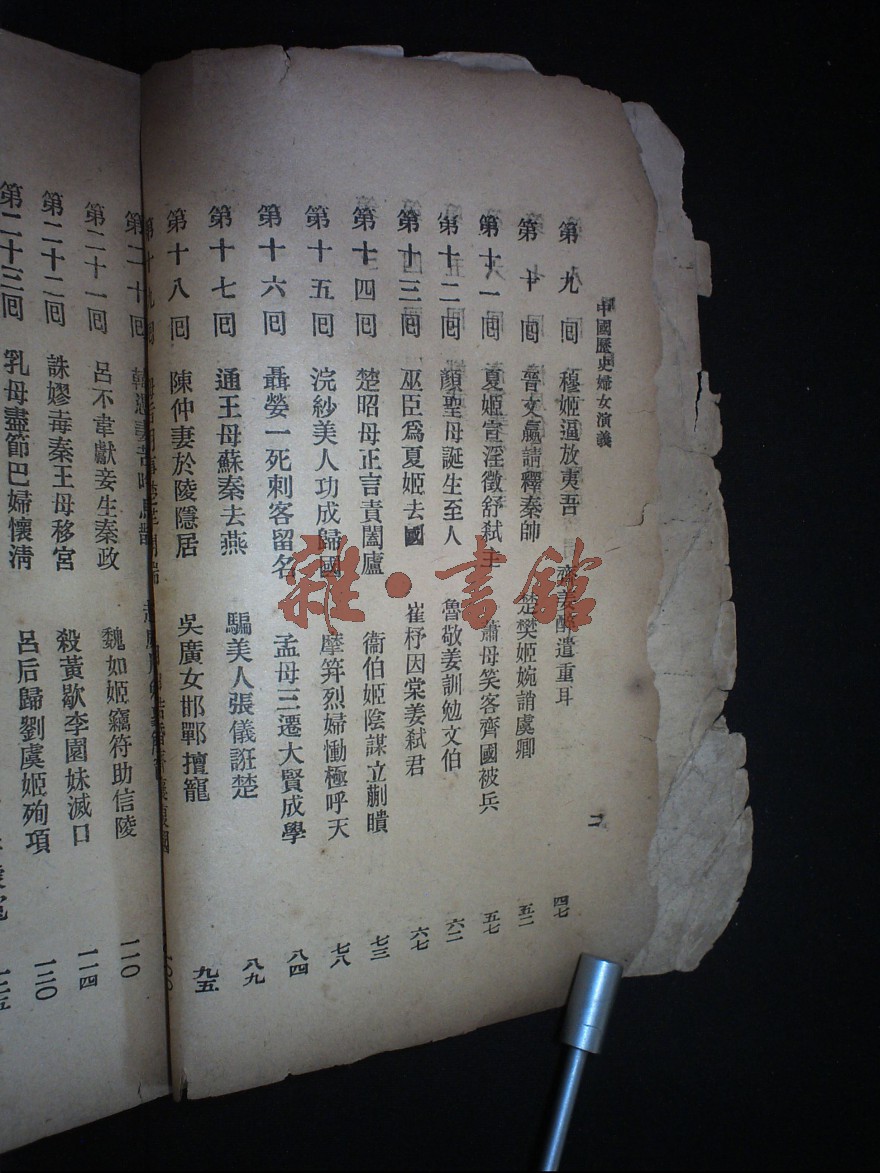 中國歷史婦女演義
二
第九回 穆姬逼放夷吾 齊姜醉遣重耳 四七
第十回 晉文嬴請釋秦帥 楚樊姬婉誚虞卿 五二
第十一回 夏姬宣淫徵舒弒主 蕭母笑客齊國被兵 五七
第十二回 顏聖母誕生至人 魯敬姜訓勉文伯 六二
第十三回 巫臣爲夏姬去國 崔杼因棠姜弒君 六七
第十四回 楚昭母正言責闔廬 衞伯姬陰謀立蒯聵 七三
第十五回 浣紗美人功成歸國 摩笄烈婦慟極呼天 七八
第十六回 聶嫈一死刺客留名 孟母三遷大賢成學 八四
第十七回 通王母蘇秦去燕 騙美人張儀誑楚 八九
第十八回 陳仲妻於陵隱居 吳廣女邯鄲擅寵 九五
第十九回
第二十回 韓
第二十一回 呂不韋獻妾生秦政 魏如姬竊符助信陵 一一〇
第二十二回 誅嫪毐秦王母移宮 殺黃歇李園妹滅口 一一四
第二十三回 乳母盡節巴婦懷清 呂后歸劉虞姬殉項 一二〇
雜·書館